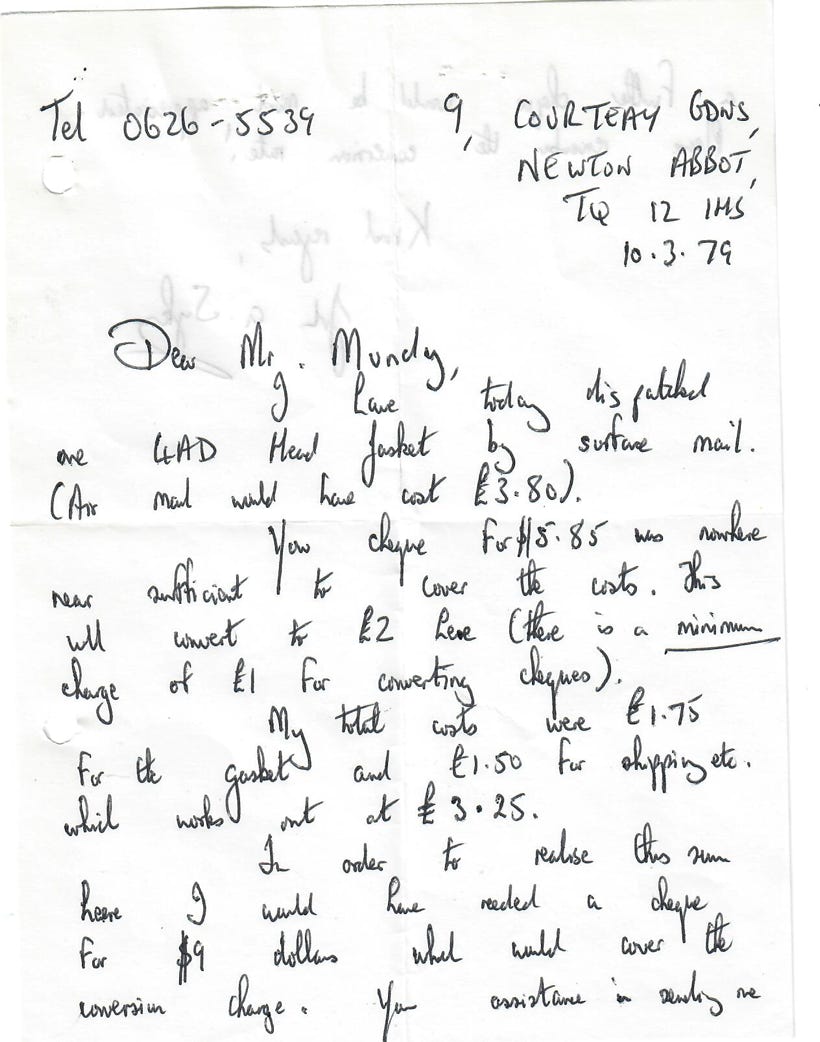 Tel 0626-5539 9, COURTEAY GDNS,
NEWTON ABBOT,
TQ 12 1HS
10.3.79
Dear Mr. Mundy,
I have today dispatched
one 4AD Head Gasket by surface mail.
(Air mail would have cost £3.80).
Your cheque for $5.85 was nowhere
near sufficient to cover the costs. This
will convert to £2 here (there is a minimum
charge of £1 for converting cheques).
My total costs were £1.75
for the gasket and £1.50 for shipping etc.
which works out at £3.25.
In order to realise this sum
heere I would have needed a cheque
for $9 dollars which would cover the
conversion charge. Your assistance in sending me